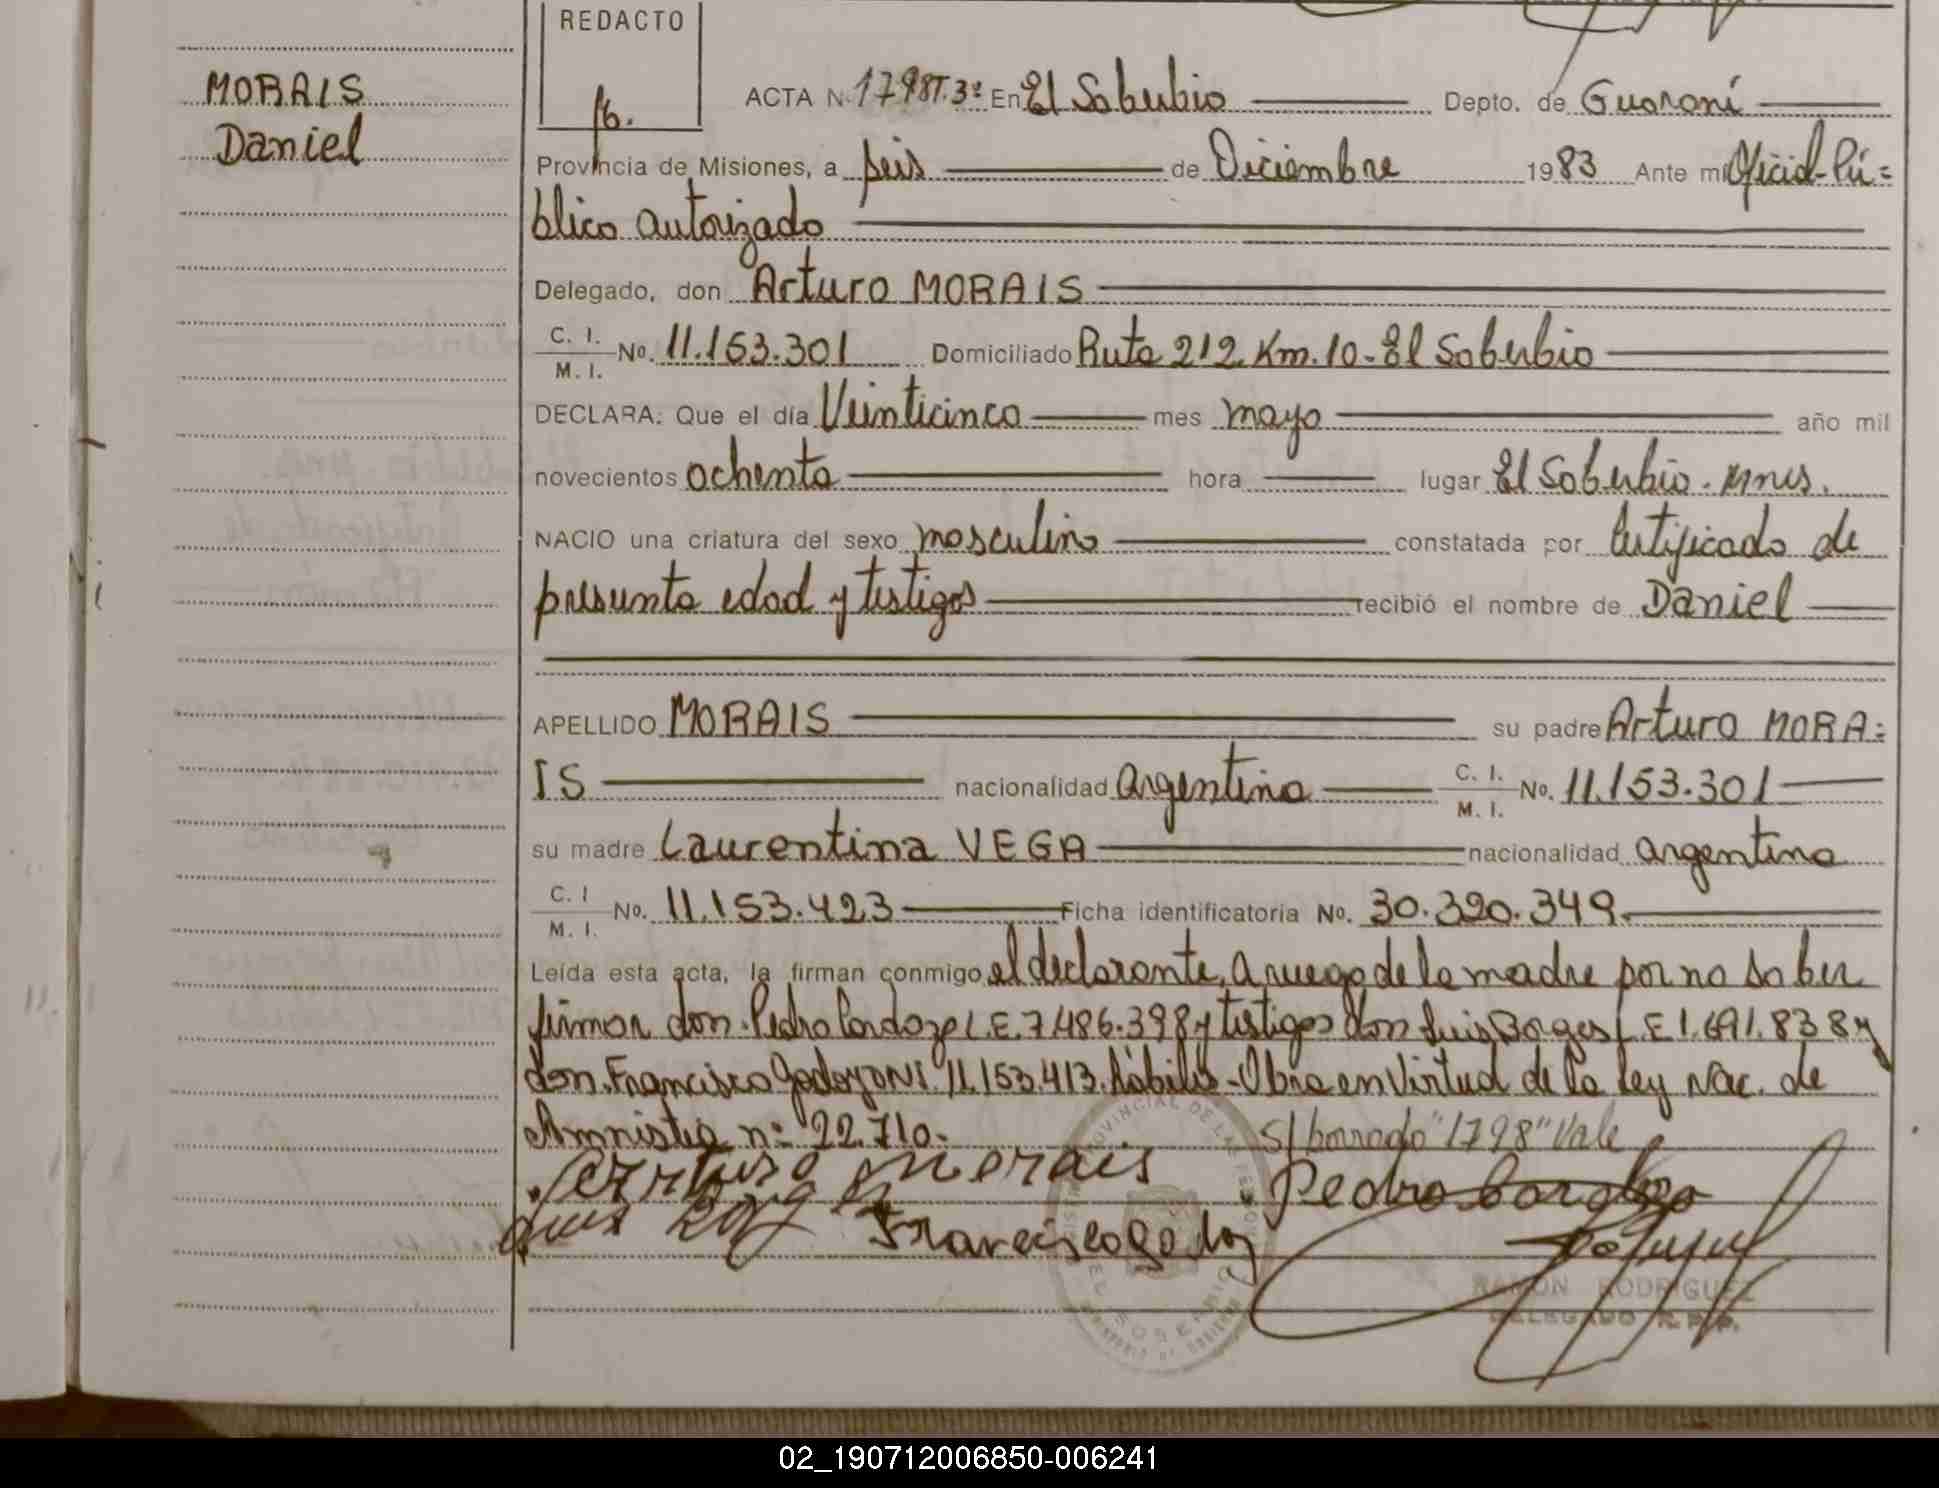 REDACTO
MORAIS
Daniel
ACTA N. 1798 T. 3º En El Soberbio Depto. de Guaraní
Provincia de Misiones, a seis de Diciembre 1983 Ante mi Oficial Pú=
blico autorizado
Delegado, don Arturo MORAIS
C. I.
M. I. No. 11.153.301 Domiciliado Ruta 212 Km. 10 - El Soberbio
DECLARA: Que el día Veinticinco mes mayo año mil
novecientos ochenta hora lugar El Soberbio. Mnes.
NACIO una criatura del sexo masculino constatada por Certificado de
presunta edad y testigos recibió el nombre de Daniel
APELLIDO MORAIS su padre Arturo MORA=
IS nacionalidad argentina C. I.
M. I. No. 11.153.301
su madre Laurentina VEGA nacionalidad argentina
C. I
M. I. No. 11.153.423 Ficha identificatoria No. 30.320.349.
Leída esta acta, la firman conmigo el declarante, a ruego de la madre por no saber
firmar don Pedro Cardozo L.E. 7.486.398 y testigos don Luis Borges L.E 1.691.838 y
don Francisco Godoy DNI 11.153.413. Hábiles - Obra en Virtud de la ley Nac. de
Amnistia nº 22.710.
S/borrado "1798" Vale
Arturo Morais
Pedro Cardozo
Luis
Francisco Godoy
RAMON RODRIGUEZ
DELEGADO R.P.P.
EL SOBERBIO
02_190712006850-006241